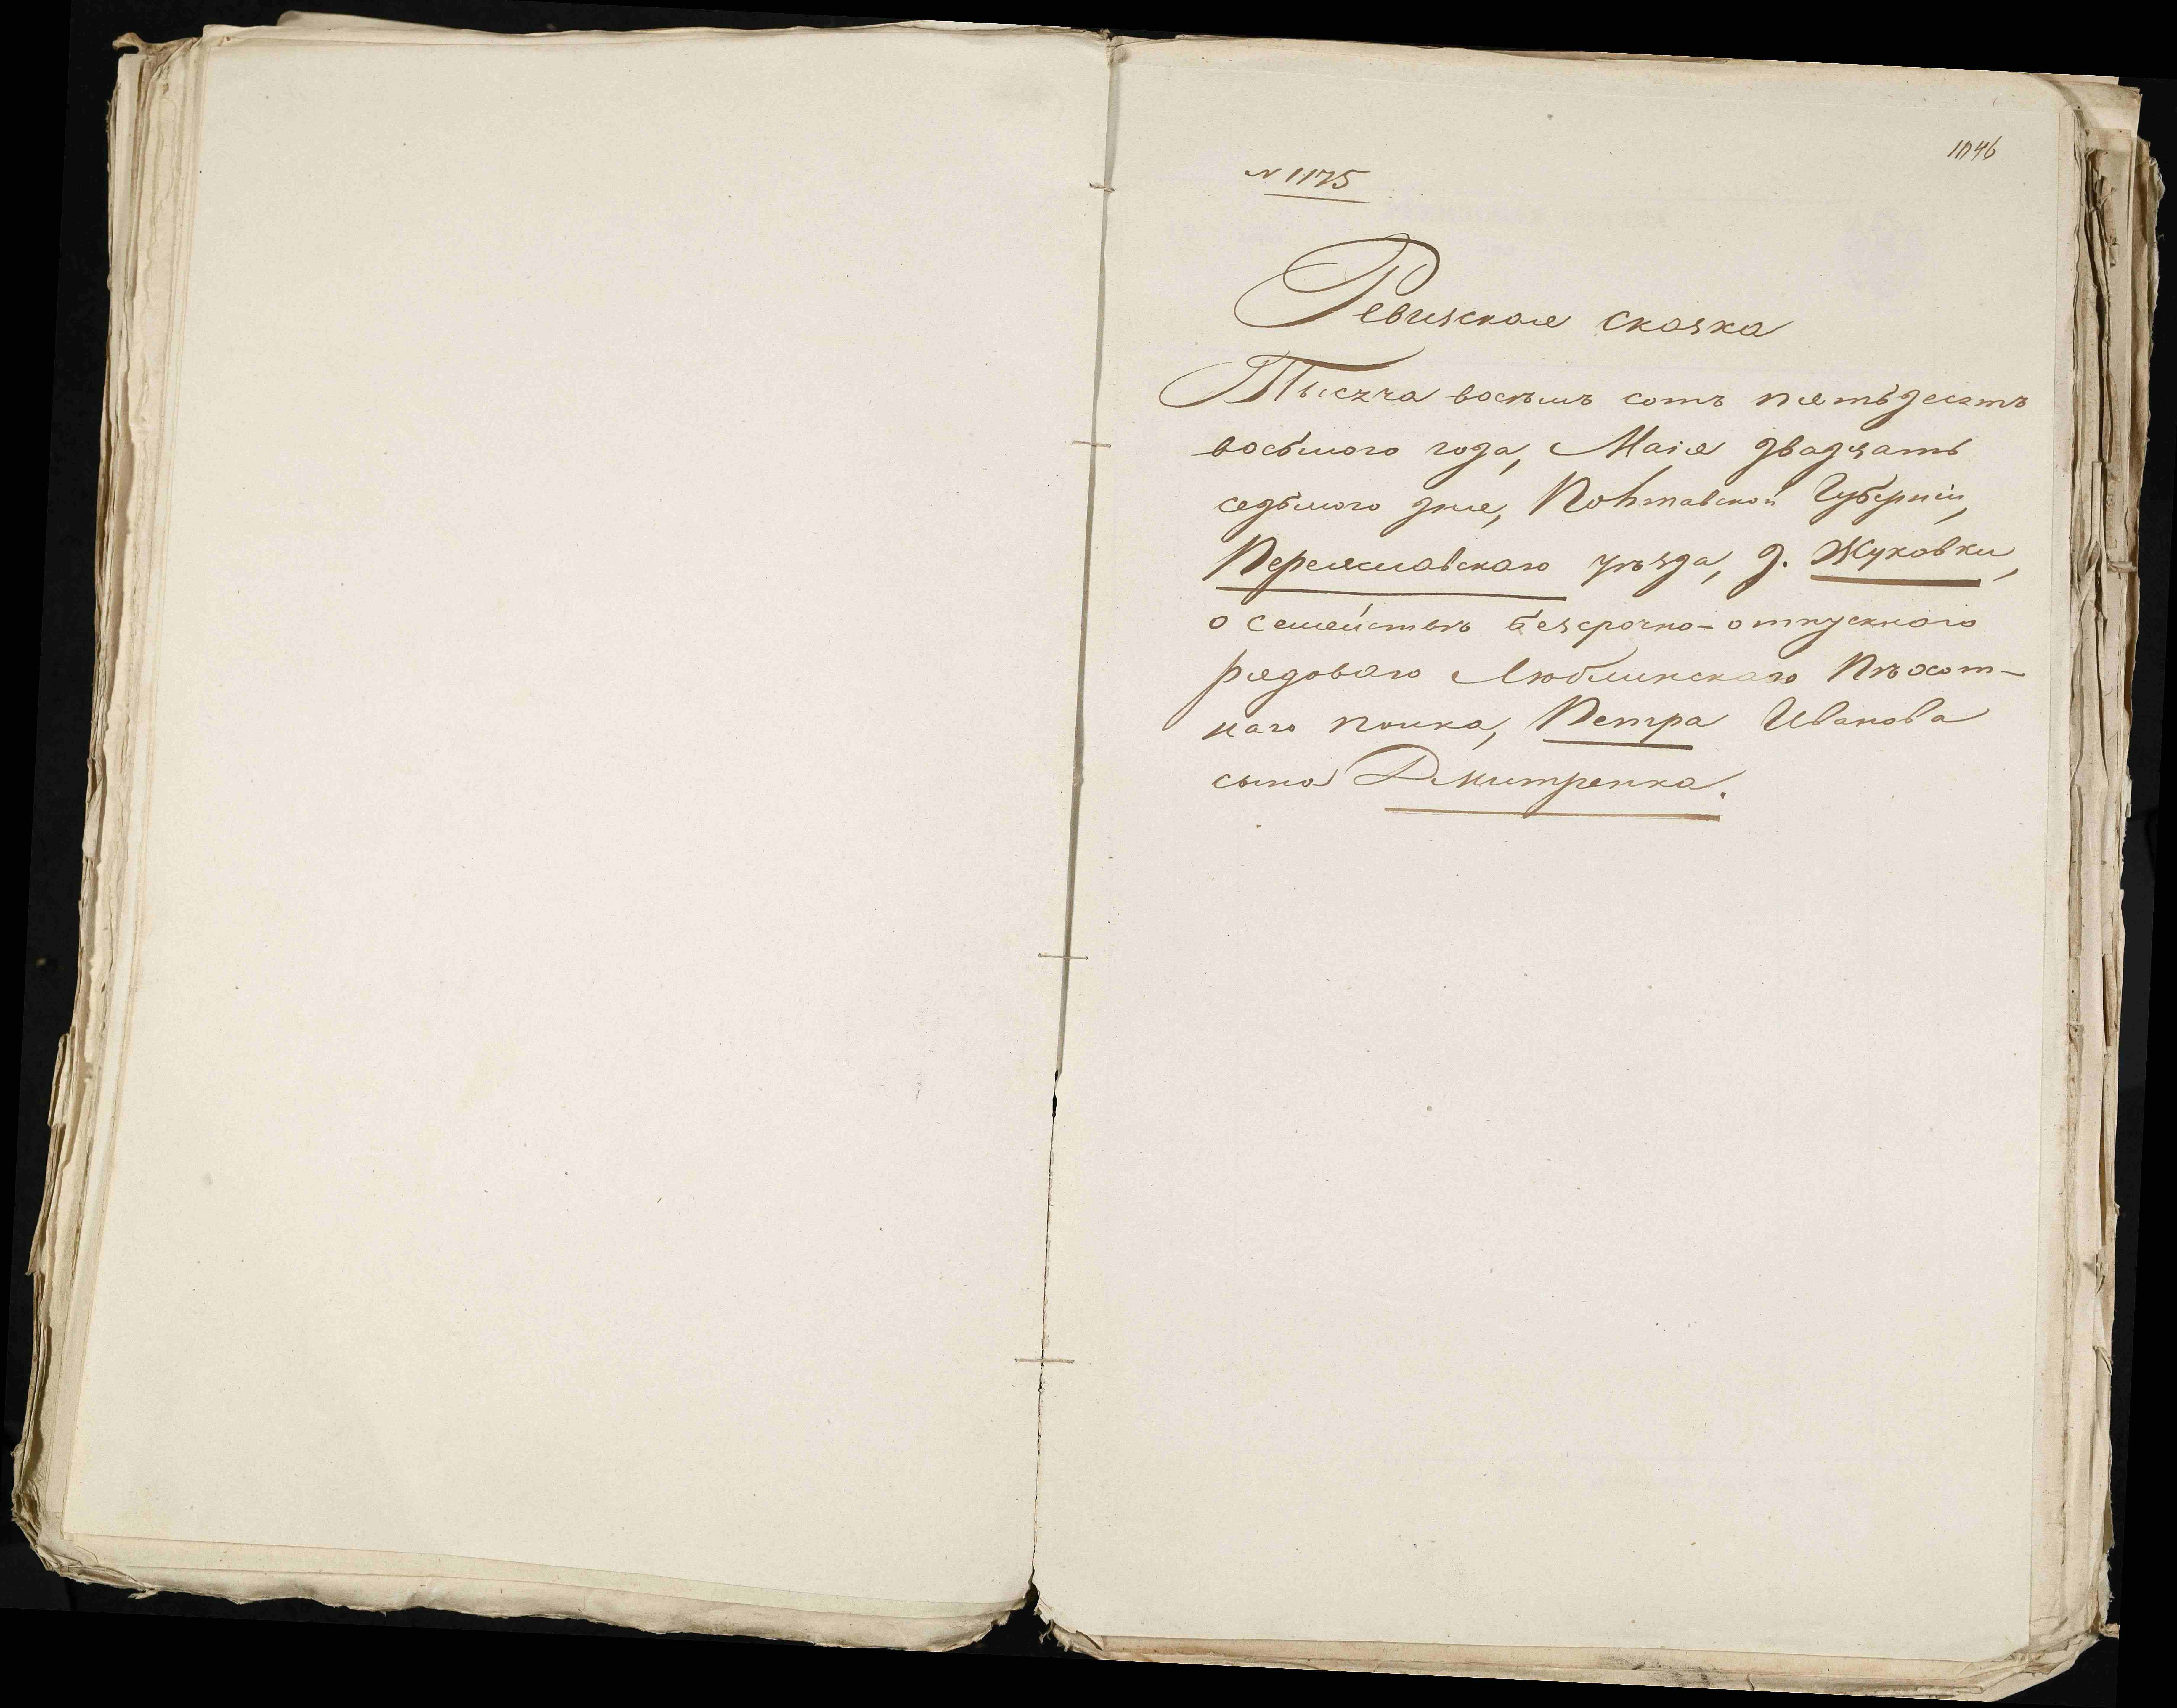 1046
N 1175
Ревизская сказка
Тысяча восѣмъ сотъ пятьдесятъ
восьмого года, Маія двадцать
седьмого дня, Полтавской Губерніи,
Переяславскаго уѣзда, д. Жуковки,
о семействѣ безсрочно-отпускнаго
рядоваго Люблинскаго Пѣхот-
наго полка, Петра Иванова
сына Дмитренка.